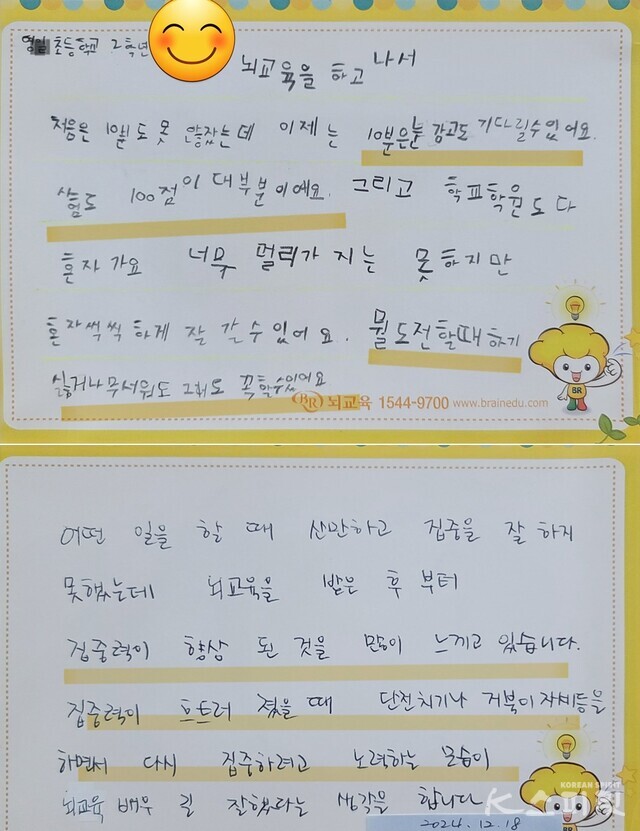 초등학교 2학년
뇌교육을 하고 나서
처음은 1분도 못 앉잤는데 이제는 10분은 눈 감고도 기다릴수 있어요.
시험도 100점이 대부분이에요. 그리고 학교학원도 다
혼자 가요 너무 멀리가지는 못하지만
혼자씩씩하게 잘 갈 수 있어요. 뭘 도전할때 하기
싫거나 무서워도 그래도 꼭 할수있어요
BR 뇌교육 1544-9700 www.brainedu.com
BR
어떤 일을 할 때 산만하고 집중을 잘 하지
못했는데 뇌교육을 받은 후 부터
집중력이 향상 된 것을 많이 느끼고 있습니다.
집중력이 흐트러 졌을 때 단전치기나 거북이자세등을
하면서 다시 집중하려고 노력하는 모습이
뇌교육 배우길 잘했다는 생각을 합니다
KOREAN SPIRIT
K스피릿
2024.12.18